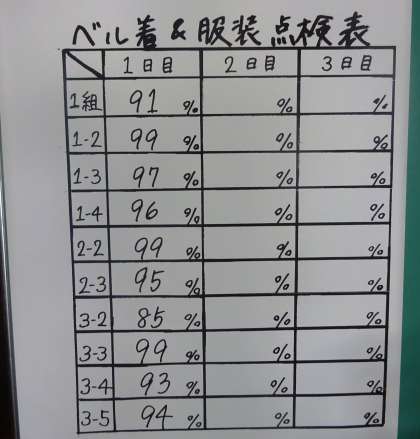 ベル着&服装点検表
1日目 2日目 3日目
1組 91% % %
1-2 99% % %
1-3 97% % %
1-4 96% % %
2-2 99% % %
2-3 95% % %
3-2 85% % %
3-3 99% % %
3-4 93% % %
3-5 94% % %